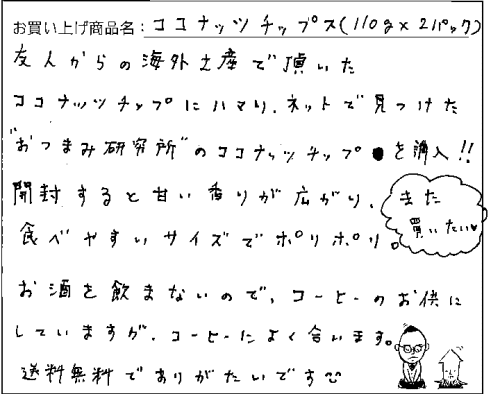 お買い上げ商品名：ココナッツチップス(110g×2パック)
友人からの海外土産で頂いた
ココナッツチップにハマり、ネットで見つけた
"おつまみ研究所"のココナッツチップ●を購入!!
開封すると甘い香りが広がり、
食べやすいサイズでポリポリ。
また
買いたい♥
お酒を飲まないので、コーヒーのお供に
していますが、コーヒーによく合います。
送料無料でありがたいです☺